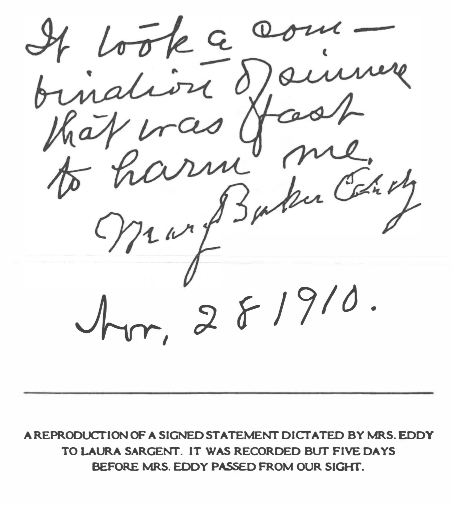 It took a com-
bination of sinners
that was fast
to harm me.
Mary Baker Eddy
Nov, 28 1910.
A REPRODUCTION OF A SIGNED STATEMENT DICTATED BY MRS. EDDY
TO LAURA SARGENT. IT WAS RECORDED BUT FIVE DAYS
BEFORE MRS. EDDY PASSED FROM OUR SIGHT.